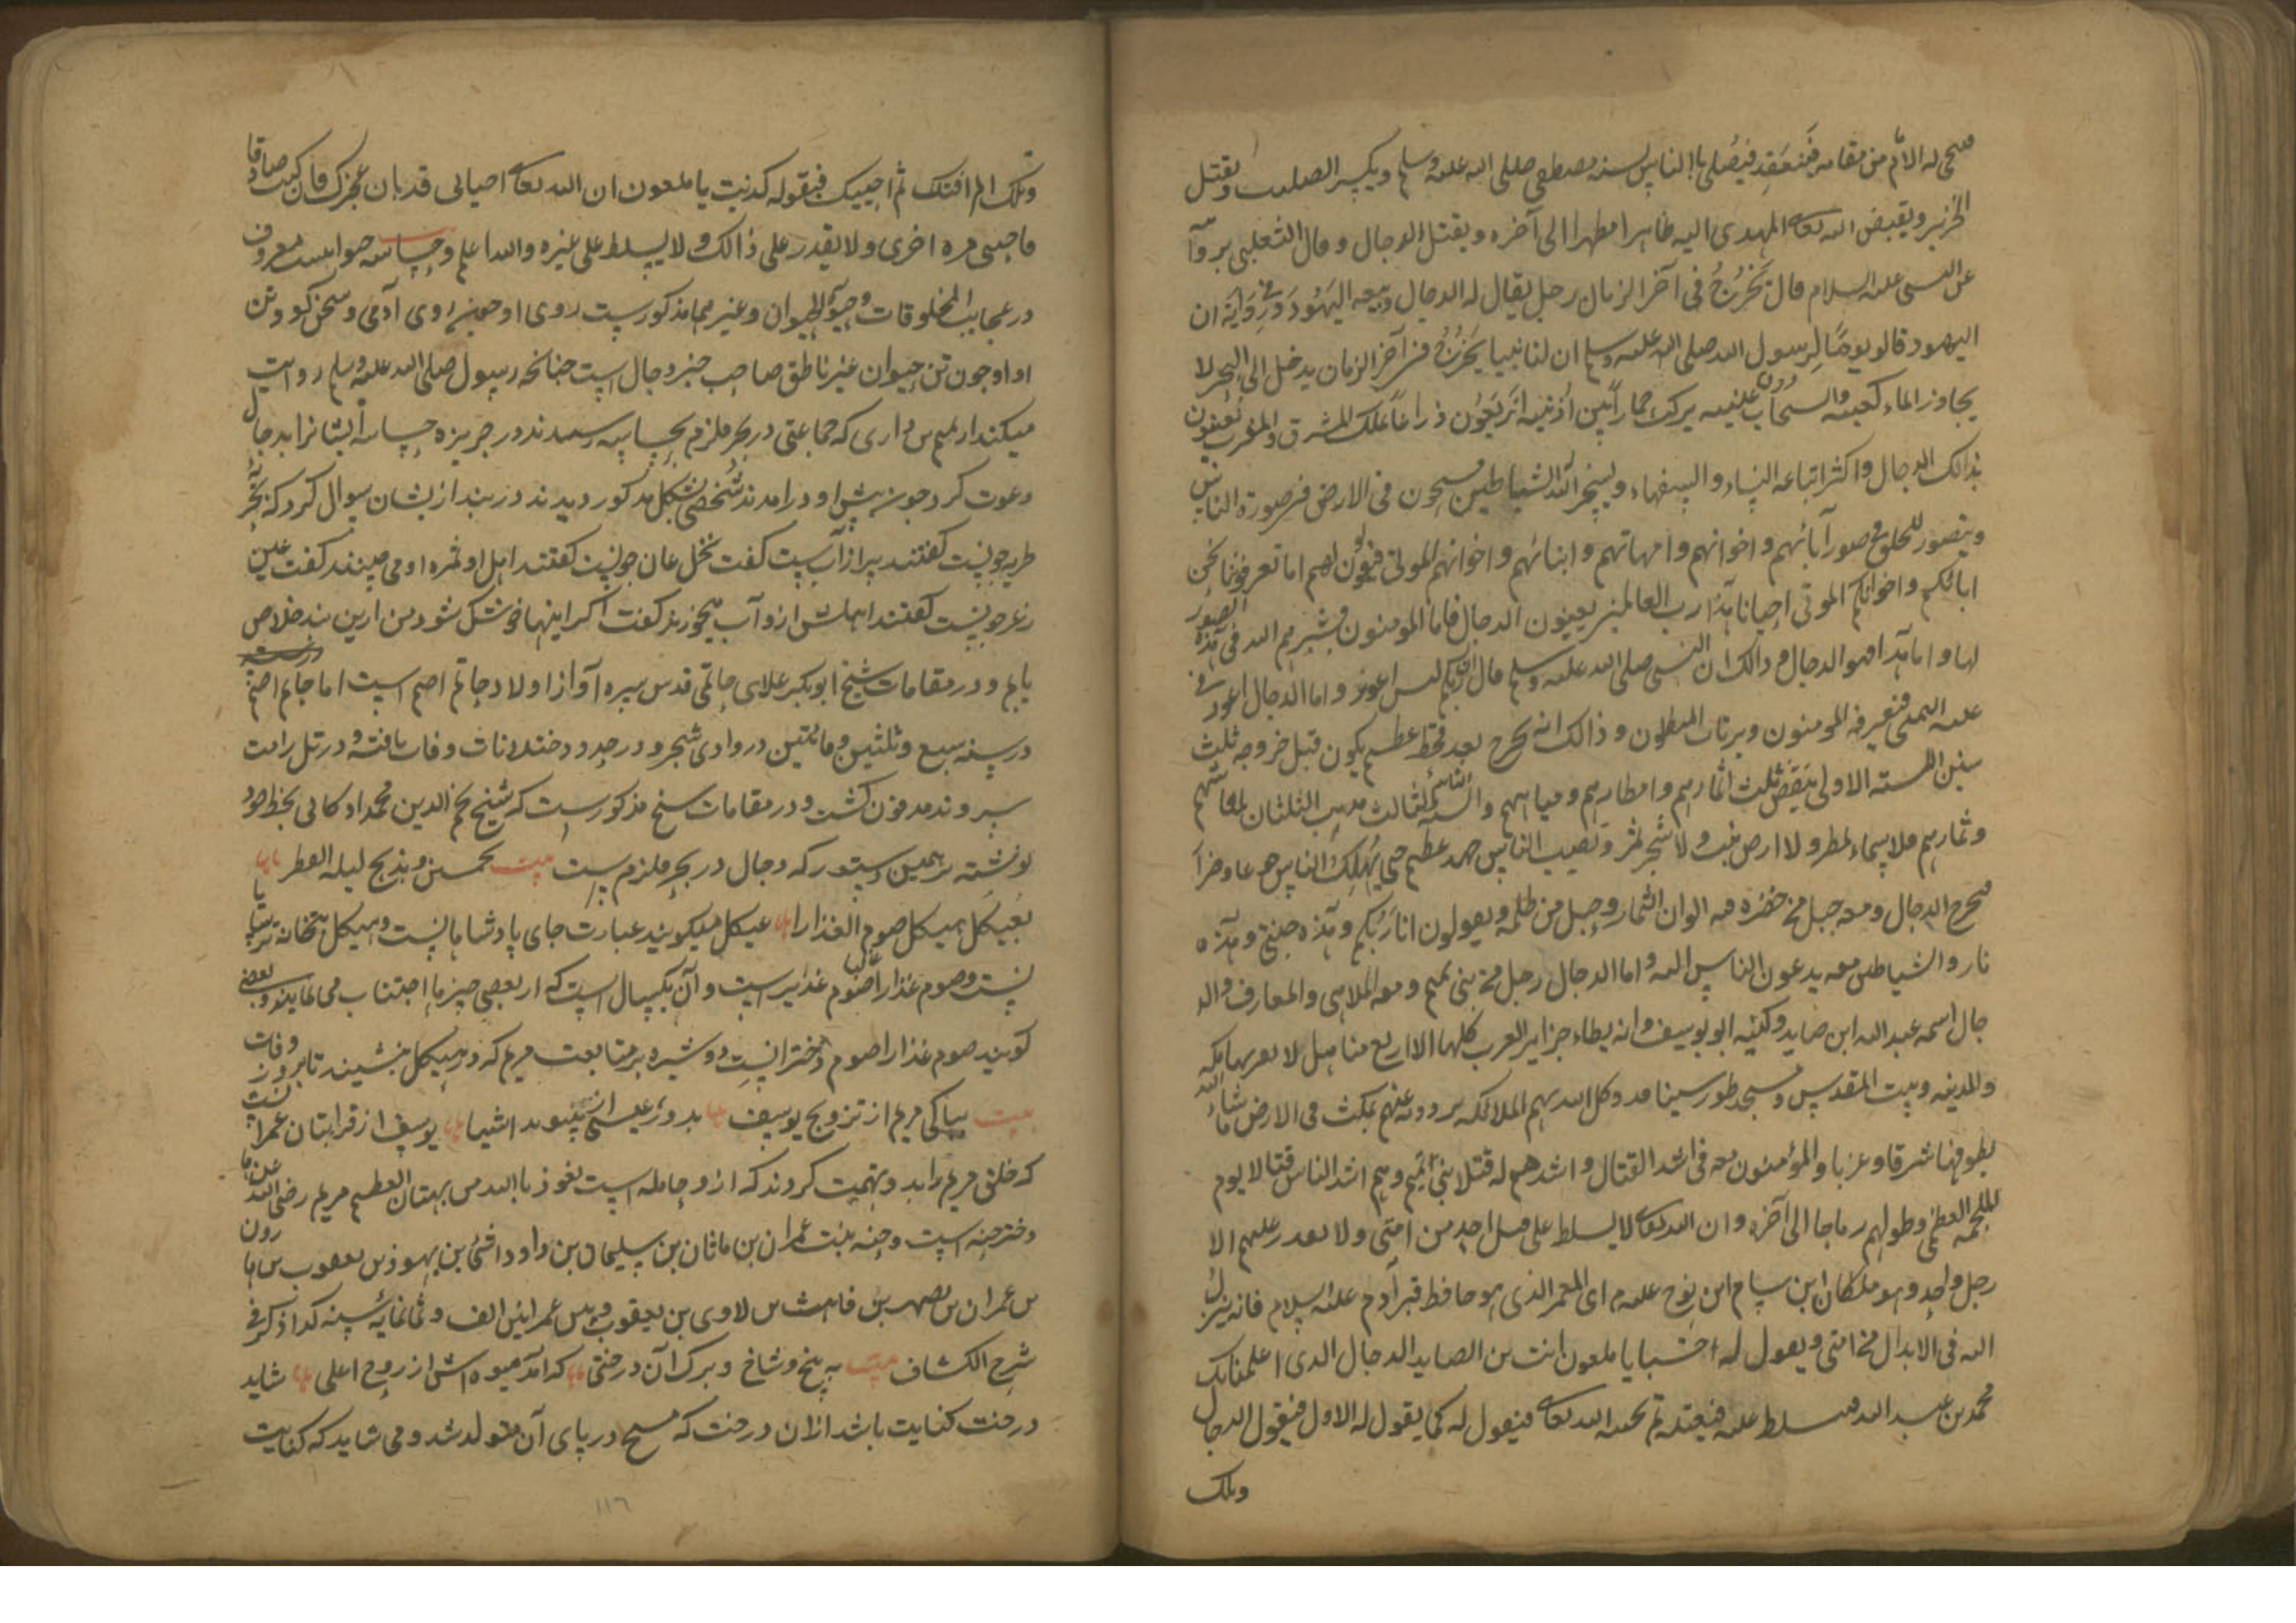 له الامام من مقامه فيصلی بالناس بسنه مصطفی صلی الله علیه وسلم ویکسر الصلیب ویقتل
الخنزیر ویقبض الله تعالی المهدی الیه طاهرا مطهرا الی آخره ویقتل الدجال وقال الثعلبی
عن النبی علیه السلام قال یخرج فی آخر الزمان رجل یقال له الدجال ویتبعه الیهود وفی روایة ان
الیهود قالو یوما لرسول الله صلی الله علیه وسلم ان لنا نبیا یخرج فی آخر الزمان یدخل الی البحر لا
یجاوز الماء کعبیه والسحاب دون یرکب حمارا بین اذنیه اربعون ذراعا یملک المشرق والمغرب یعنون
بذالک الدجال واکثر اتباعه النساء والسفهاء ویسخر الله الشیاطین یسیحون فی الارض فی صورة الناس
ویتصور للخلق فی صور آبائهم واخوانهم وامهاتهم وابنائهم واخوانهم الموتی فیقولون لهم اما تعرفوننا نحن
ابائکم واخوانکم الموتی احیانا هذا رب العالمین یعنون الدجال فاما المومنون فیبشرهم الله فی هذه الصور
لها واما هذا فهو الدجال وذالک ان النبی صلی الله علیه وسلم قال ان ربکم لیس اعور واما الدجال اعور فی
عینه الیمنی فیعرفه المومنون ویرتاب المبطلون وذالک انه یخرج بعد قحط عظیم یکون قبل خروجه ثلث
سنین السنه الاولی ینقص ثلث اثمارهم وامطارهم ومیاههم والسنه الثالث الثلثان
وثمارهم فلا سماء یمطر ولا ارض ینبت ولا شجر یثمر وتصیب الناس جهد عظیم حتی یهلک الناس جوعا وضرا
یخرج الدجال ومعه جبل من خضره فیه الوان الثمار وجبل من ظلمه ویقولون انا ربکم وهذه جنتی وهذه
نار والشیاطین معه یدعون الناس الیه واما الدجال رجل من بنی تمیم ومعه الملاهی والمعارف والد
جال اسمه عبد الله ابن صاید وکنیته ابو یوسف وانه یطاء جزایر العرب کلها الا اربع مناهل لا یقربها مکه
والمدینه وبیت المقدس ومسجد طور سینا قد وکل الله بهم الملائکه یردونه عنهم یمکث فی الارض ما شاء الله
یطوفها شرقا وغربا والمؤمنون معه فی اشد القتال واشدهم له قتلا بنی تمیم وهم اشد الناس قتالا یوم
الملحمه العظمی وطولهم رماحا الی آخره وان الله تعالی لا یسلط علی قتل احد من امتی ولا یقدر علیهم الا
رجل واحد وهو ملکان ابن سام ابن نوح علیه ای المعمر الذی هو حافظ قبر آدم علیه السلام فانه ینزل
الله فی الابدال من امتی ویقول له اخسا یا ملعون انت بن الصاید الدجال الذی اعلمنا بک
محمد بن عبد الله فیسلط علیه فیقتله ثم یحییه الله تعالی فیقول له کما یقول له الاول فیقول الدجال
ویلک
ویلک الم اقتلک ثم احییک فیقوله کذبت یا ملعون ان الله تعالی احیانی قد بان عجزک فان کنت صادقا
فاحیی مره اخری ولا یقدر علی ذالک ولا یسلط علی غیره والله اعلم وجساسه حیوانیست معروف
در عجایب المخلوقات وحیوة الحیوان وغیرهما مذکورست روی او چون روی آدمی وسخن گو وتن
او چون تن حیوان غیر ناطق صاحب خبر دجال است چنانچه رسول صلی الله علیه وسلم روایت
میکند از تمیم داری که جماعتی در بحر قلزم بجساسه رسیدند در جزیره جساسه ایشانرا بدجال
دعوت کرد چون پیش او درامدند شخصی بشکل مذکور دیدند در بند از یشان سوال کرد که بحر
طبریه چونست گفتند پر از آبست گفت نخل عان چونست گفتند اهل او ثمره او می چینند گفت عین
زغر چونست گفتند اهلش ازو آب میخورند گفت اگر اینها خشک شود من ازین بند خلاص
یابم ودر مقامات شیخ ابوبکر علای حاتمی قدس سره آواز اولاد حاتم اصم است اما حاتم اصم
در سنه سبع وثلثین ومائتین در وادی شجر ودر حدود وفات یافته ودر تل رامت
سروند مدفون گشت ودر مقامات شیخ مذکورست که شیخ نجم الدین محمد ادکانی بخط خود
نوشته بهمین دستور که دجال در بحر قلزم است بیت بخمسین وبذبح لیله الفطر
بعیکل هیکل صوم العذارا عیکل میگویند عبارت جای پادشاهانیست وهیکل بتخانه ترسایا
نست وصوم عذارا صوم است وآن یکسال است که از بعضی چیزها اجتناب می نمایند وبعضی
گویند صوم عذارا صوم دخترانیست دوشیزه بر متابعت مریم که در هیکل بنشیند تا بروز وفات
بیت بپاکی مریم از تزویج یوسف بدوری عیسی از پیوند اشیا یوسف از قرابتان عمرانست
که خلق مریم را بد وتهمت کردند که ازو حامله است نعوذ بالله من بهتان العظیم مریم رضی الله عنها
دختر حنه است وحنه بنت عمران بن ماثان بن سلیمان بن داود بن بن یهود بن یعقوب
بن عمران بن یصهر بن قاهث بن لاوی بن یعقوب وبین عمرانین الف وثمانمایه سنه کذا ذکر فی
شرح الکشاف بیت به بیخ وشاخ وبرگ آن درختی که آمد میوه اش از روح اعلی شاید
درخت کنایت باشد ازان درخت که مسیح در پای آن متولد شد ومی شاید که کنایت
۱۱۶